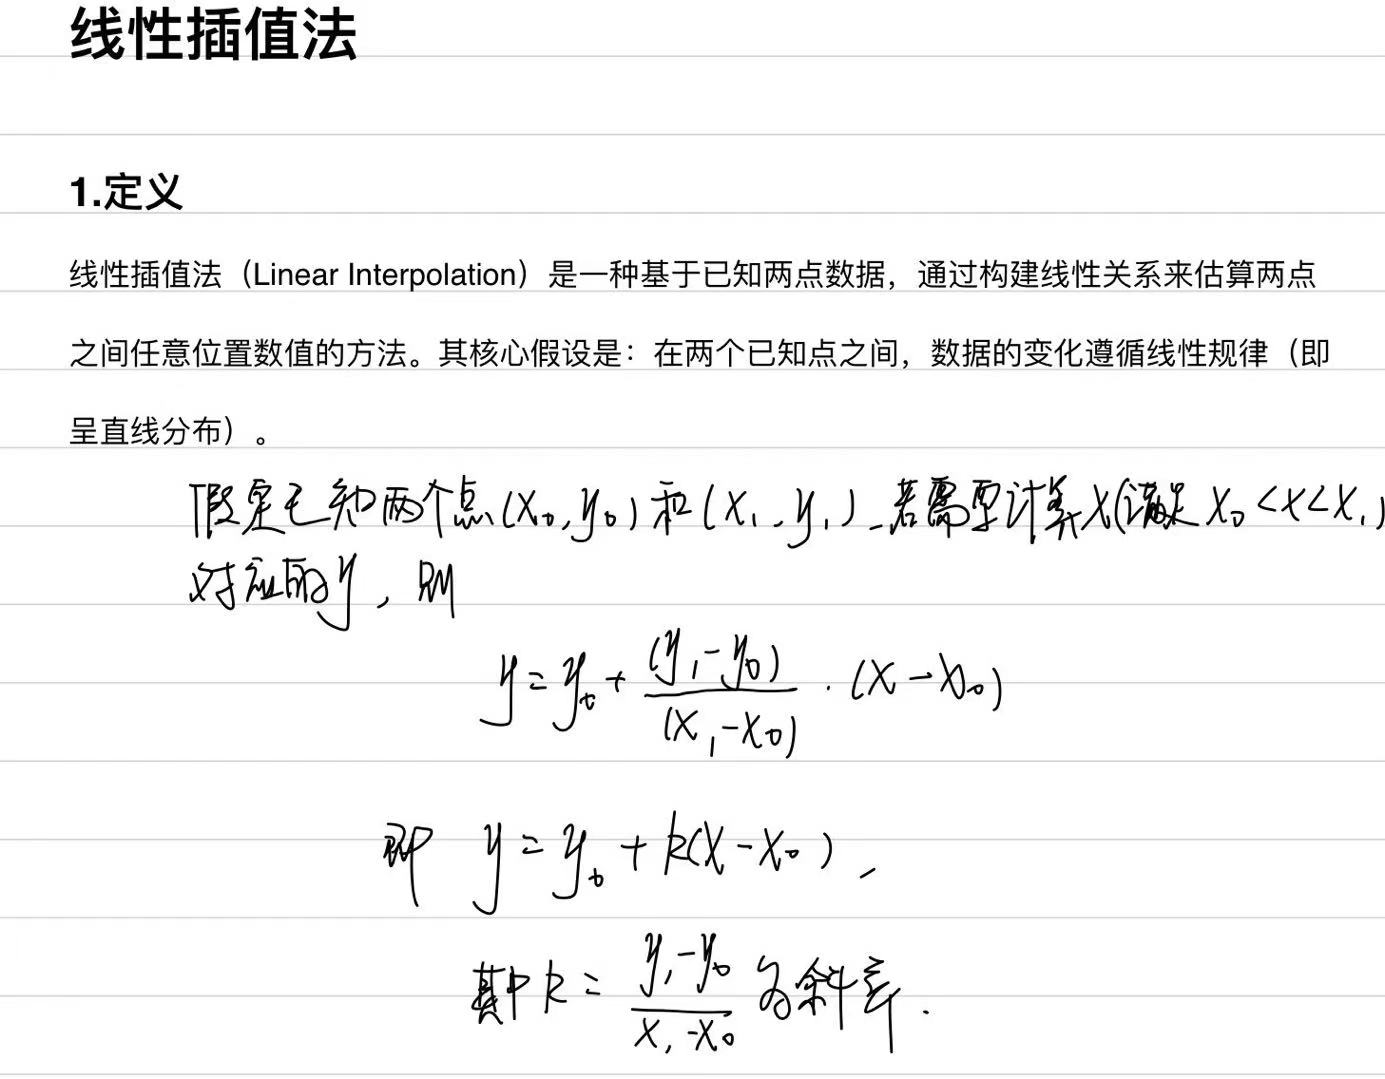 线性插值法
1.定义
线性插值法（Linear Interpolation）是一种基于已知两点数据，通过构建线性关系来估算两点
之间任意位置数值的方法。其核心假设是：在两个已知点之间，数据的变化遵循线性规律（即
呈直线分布）。
假定已知两个点(x₀,y₀)和(x₁,y₁),若需要计算x(满足x₀<x<x₁)
对应的y，则
y=y₀+(y₁-y₀)/(x₁-x₀)·(x-x₀)
即 y=y₀+k(x-x₀),
其中k=(y₁-y₀)/(x₁-x₀)为斜率.